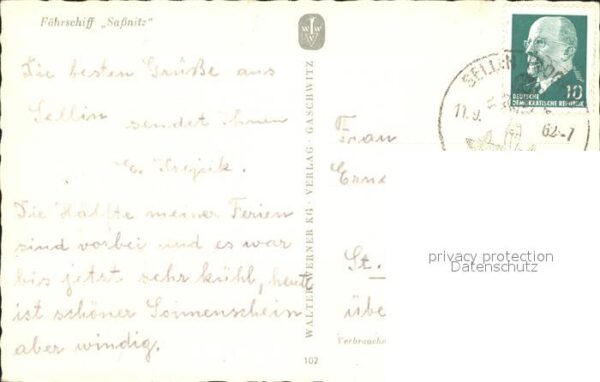 Fährschiff „Saßnitz"
Die besten Grüße aus
Sellin sendet Ihnen
Die Hälfte meiner Ferien
sind vorbei und es war
bis jetzt sehr kühl, heute
ist schöner Sonnenschein
aber windig.
WALTER WERNER KG · VERLAG · GASCHWITZ
102
SELLIN
11.9. 62-7
10
DEUTSCHE
DEMOKRATISCHE REPUBLIK
Frau
St.
übe
Verbrauche
privacy protection
Datenschutz